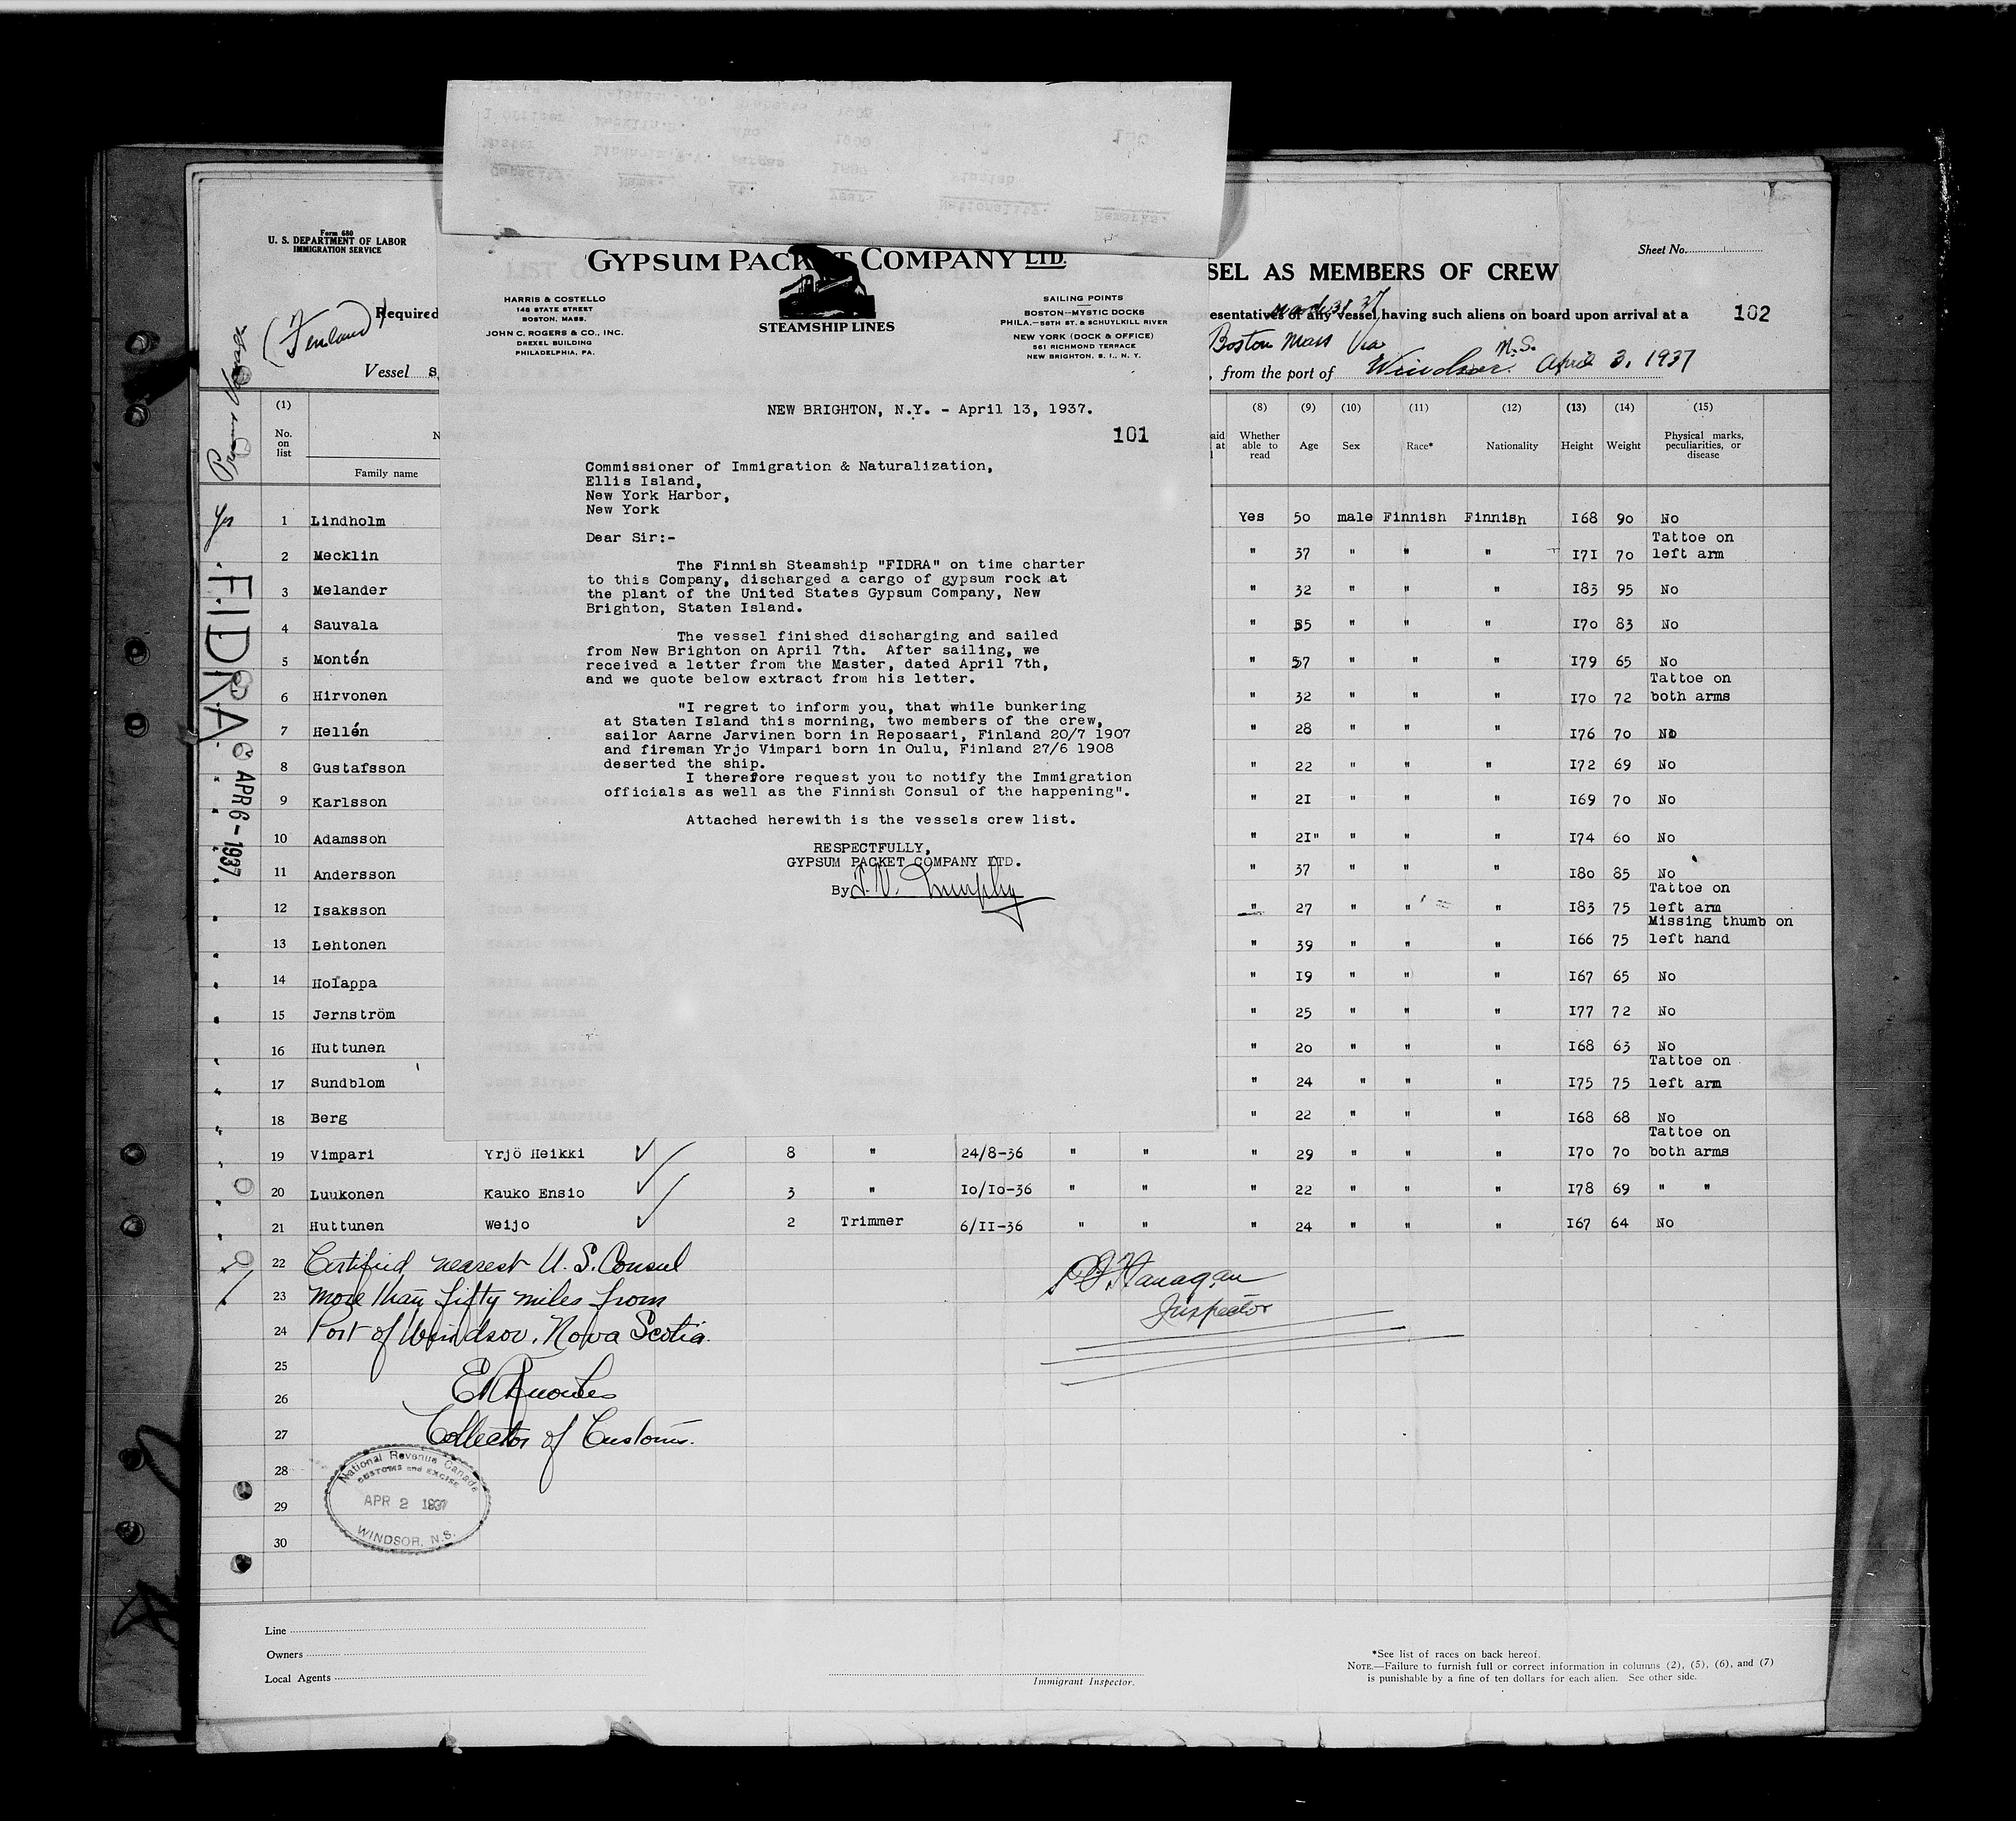 Form 680
U. S. DEPARTMENT OF LABOR
IMMIGRATION SERVICE
Required
Vessel S,
GYPSUM PACKET COMPANY LTD.
STEAMSHIP LINES
HARRIS & COSTELLO
148 STATE STREET
BOSTON, MASS.
JOHN C. ROGERS & CO., INC.
DREXEL BUILDING
PHILADELPHIA, PA.
SAILING POINTS
BOSTON—MYSTIC DOCKS
PHILA.—58TH ST. & SCHUYLKILL RIVER
NEW YORK (DOCK & OFFICE)
561 RICHMOND TERRACE
NEW BRIGHTON, S. I., N. Y.
NEW BRIGHTON, N.Y. - April 13, 1937.
101
Commissioner of Immigration & Naturalization,
Ellis Island,
New York Harbor,
New York
Dear Sir:-
The Finnish Steamship "FIDRA" on time charter
to this Company, discharged a cargo of gypsum rock at
the plant of the United States Gypsum Company, New
Brighton, Staten Island.
The vessel finished discharging and sailed
from New Brighton on April 7th. After sailing, we
received a letter from the Master, dated April 7th,
and we quote below extract from his letter.
"I regret to inform you, that while bunkering
at Staten Island this morning, two members of the crew,
sailor Aarne Jarvinen born in Reposaari, Finland 20/7 1907
and fireman Yrjo Vimpari born in Oulu, Finland 27/6 1908
deserted the ship.
I therefore request you to notify the Immigration
officials as well as the Finnish Consul of the happening".
Attached herewith is the vessels crew list.
RESPECTFULLY,
GYPSUM PACKET COMPANY LTD.
By Murphy
Sheet No.
SEL AS MEMBERS OF CREW
esentatives of any vessel having such aliens on board upon arrival at a
102
Boston Mass via
, from the port of Windsor N.S. April 3, 1937
FIDRA
APR 6-1937
(1) (8) (9) (10) (11) (12) (13) (14) (15)
No. on list Family name Whether able to read Age Sex Race* Nationality Height Weight Physical marks, peculiarities, or disease
1 Lindholm Yes 50 male Finnish Finnish 168 90 No
2 Mecklin " 37 " " " 171 70 Tattoo on left arm
3 Melander " 32 " " " 183 95 No
4 Sauvala " 35 " " " 170 83 No
5 Montén " 57 " " " 179 65 No
6 Hirvonen " 32 " " " 170 72 Tattoo on both arms
7 Hellén " 28 " " " 176 70 No
8 Gustafsson " 22 " " " 172 69 No
9 Karlsson " 21 " " " 169 70 No
10 Adamsson " 21" " " " 174 60 No
11 Andersson " 37 " " " 180 85 No
12 Isaksson " 27 " " " 183 75 Tattoe on left arm
13 Lehtonen " 39 " " " 166 75 Missing thumb on left hand
14 Hoiappa " 19 " " " 167 65 No
15 Jernström " 25 " " " 177 72 No
16 Huttunen " 20 " " " 168 63 No
17 Sundblom " 24 " " " 175 75 Tattoe on left arm
18 Berg " 22 " " " 168 68 No
19 Vimpari Yrjö Heikki 8 " 24/8-36 " " " 29 " " " 170 70 Tattoo on both arms
20 Luukonen Kauko Ensio 3 " 10/10-36 " " " 22 " " " 178 69 " "
21 Huttunen Weijo 2 Trimmer 6/11-36 " " " 24 " " " 167 64 No
22 Certified nearest U. S. Consul
23 more than fifty miles from
24 Port of Windsor, Nova Scotia.
Flanagan
Inspector
25
26
27 Collector of Customs.
28
29
30
National Revenue Canada
CUSTOMS and EXCISE
APR 2 1937
WINDSOR, N.S.
Line
Owners
Local Agents
Immigrant Inspector.
*See list of races on back hereof.
NOTE.—Failure to furnish full or correct information in columns (2), (5), (6), and (7)
is punishable by a fine of ten dollars for each alien. See other side.